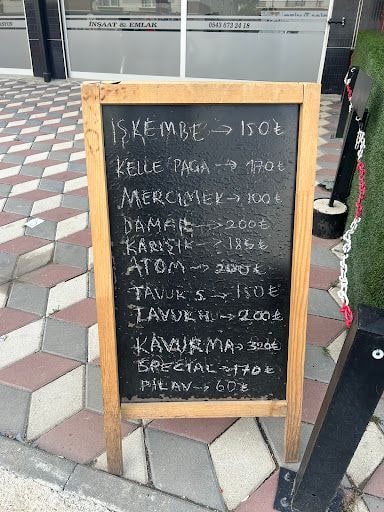 İNŞAAT & EMLAK
0543 673 24 18
İŞKEMBE → 150₺
KELLE PAÇA → 170₺
MERCİMEK → 100₺
DAMAR → 200₺
KARIŞIK → 185₺
ATOM → 200₺
TAVUK S. → 150₺
TAVUK H. → 200₺
KAVURMA → 320₺
SPECIAL → 170₺
PİLAV → 60₺